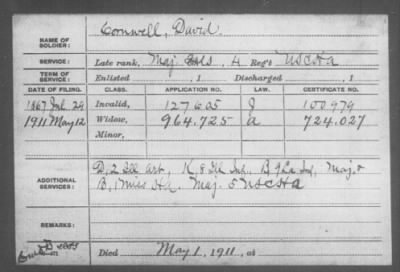 NAME OF SOLDIER: Cornwell, David.
SERVICE: Late rank, Maj. 4 Reg't USCHa
TERM OF SERVICE: Enlisted , 1 Discharged , 1
DATE OF FILING. CLASS. APPLICATION NO. LAW. CERTIFICATE NO.
1867 Jul 29 Invalid, 127605 100979
1911 May 12 Widow, 964.725 a 724.027
Minor,
D, 2 Ill Art, K, 8 Ill Inf, B, 9 La Inf, Maj. &
ADDITIONAL SERVICES: B, 1 Miss Ha. Maj. 5 USCHa
REMARKS:
Died May 1, 1911, at